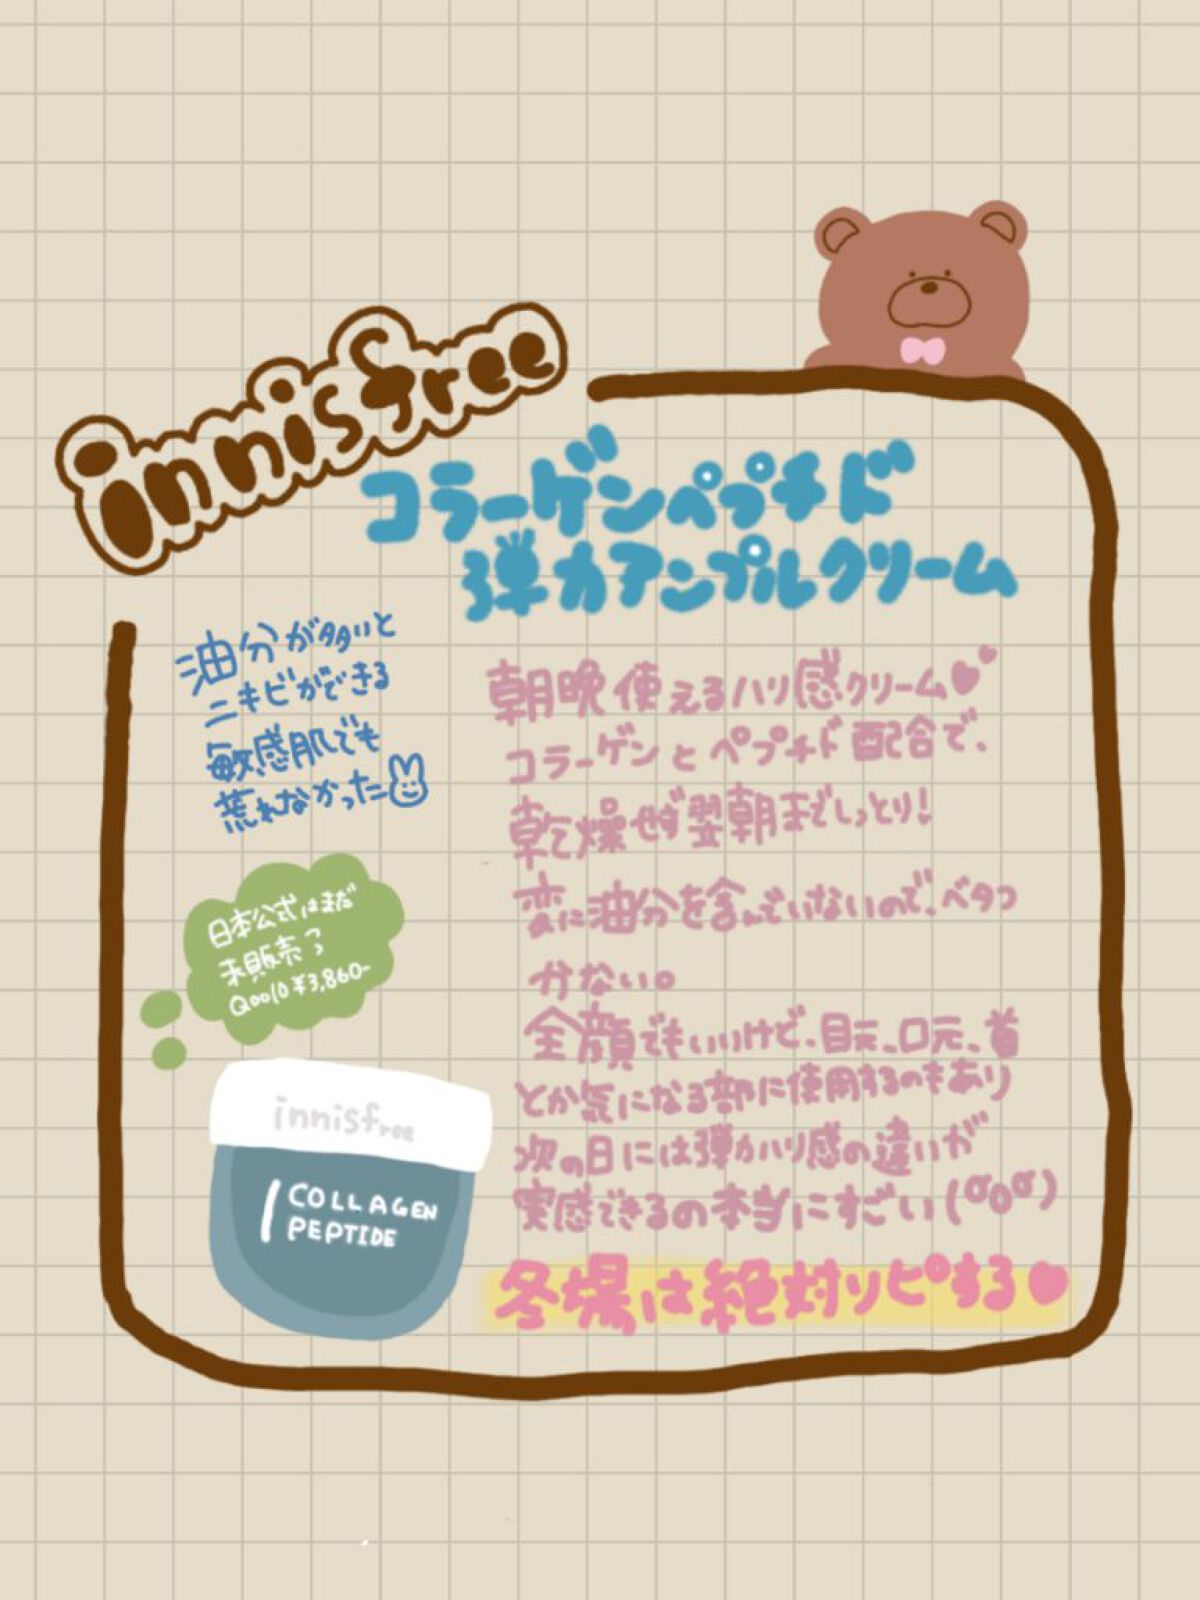 innisfree
コラーゲンペプチド
弾力アンプルクリーム
油分が多いと
ニキビができる
敏感肌でも
荒れなかった
朝晩使えるハリ感クリーム♥♥
コラーゲンとペプチド配合で、
乾燥せず翌朝までしっとり!
変に油分を含んでいないので、ベタつ
かない。
全顔でもいいけど、目元、口元、首
とか気になる部に使用するのもあり
次の日には弾力ハリ感の違いが
実感できるの本当にすごい(σoσ)
冬場は絶対リピする♥
日本公式はまだ
未販売う
Qoo10¥3,860-
innisfree
COLLAGEN
PEPTIDE